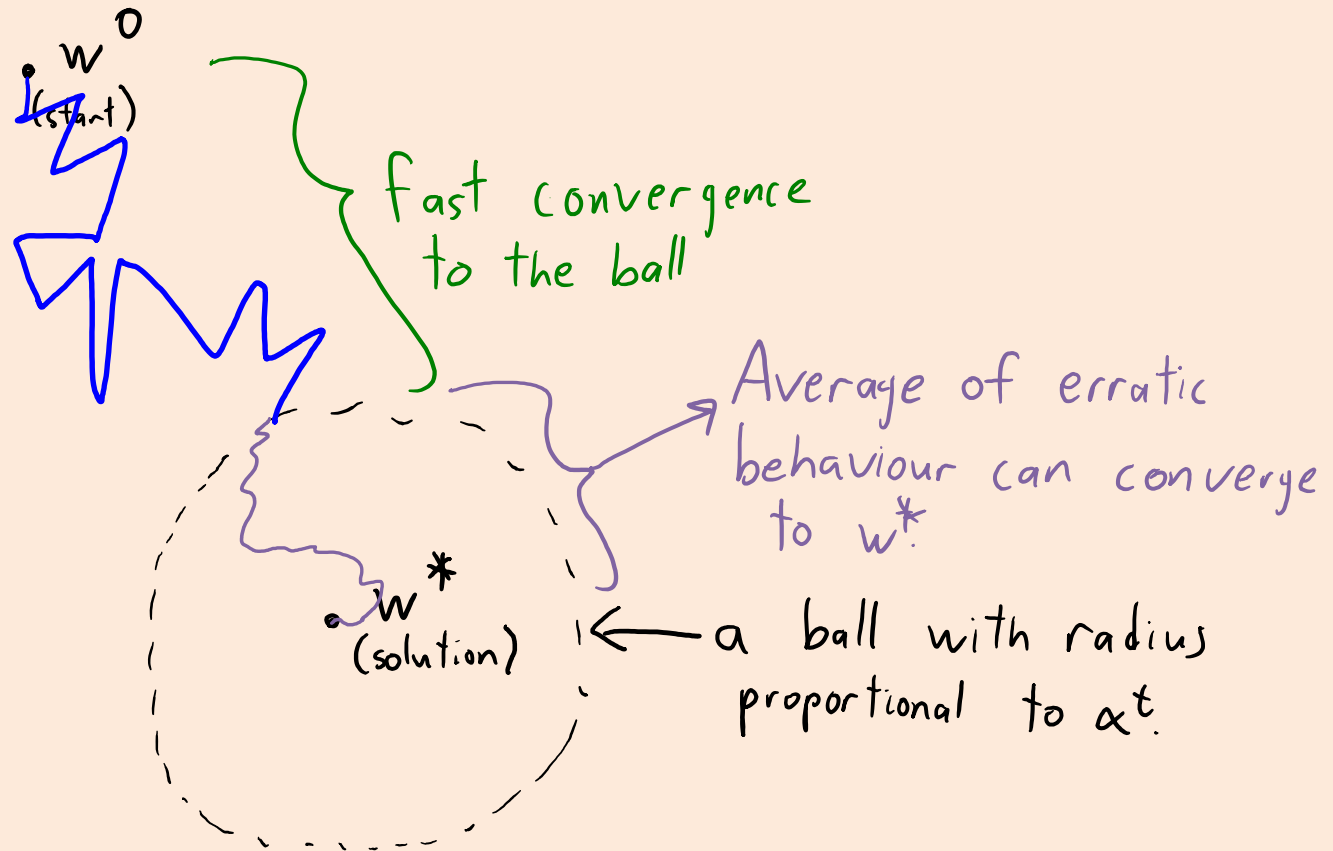 w^0
(start)
fast convergence
to the ball
Average of erratic
behaviour can converge
to w*.
w*
(solution)
a ball with radius
proportional to α^t.